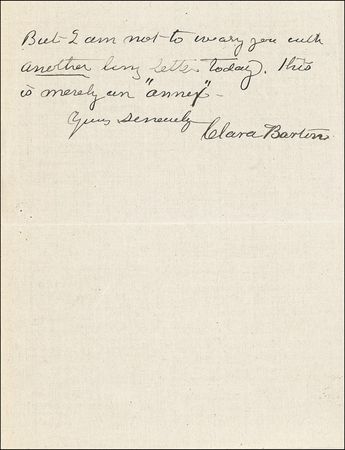 But I am not to weary you with
another long letter today. This
is merely an "annex" -
Yours sincerely
Clara Barton